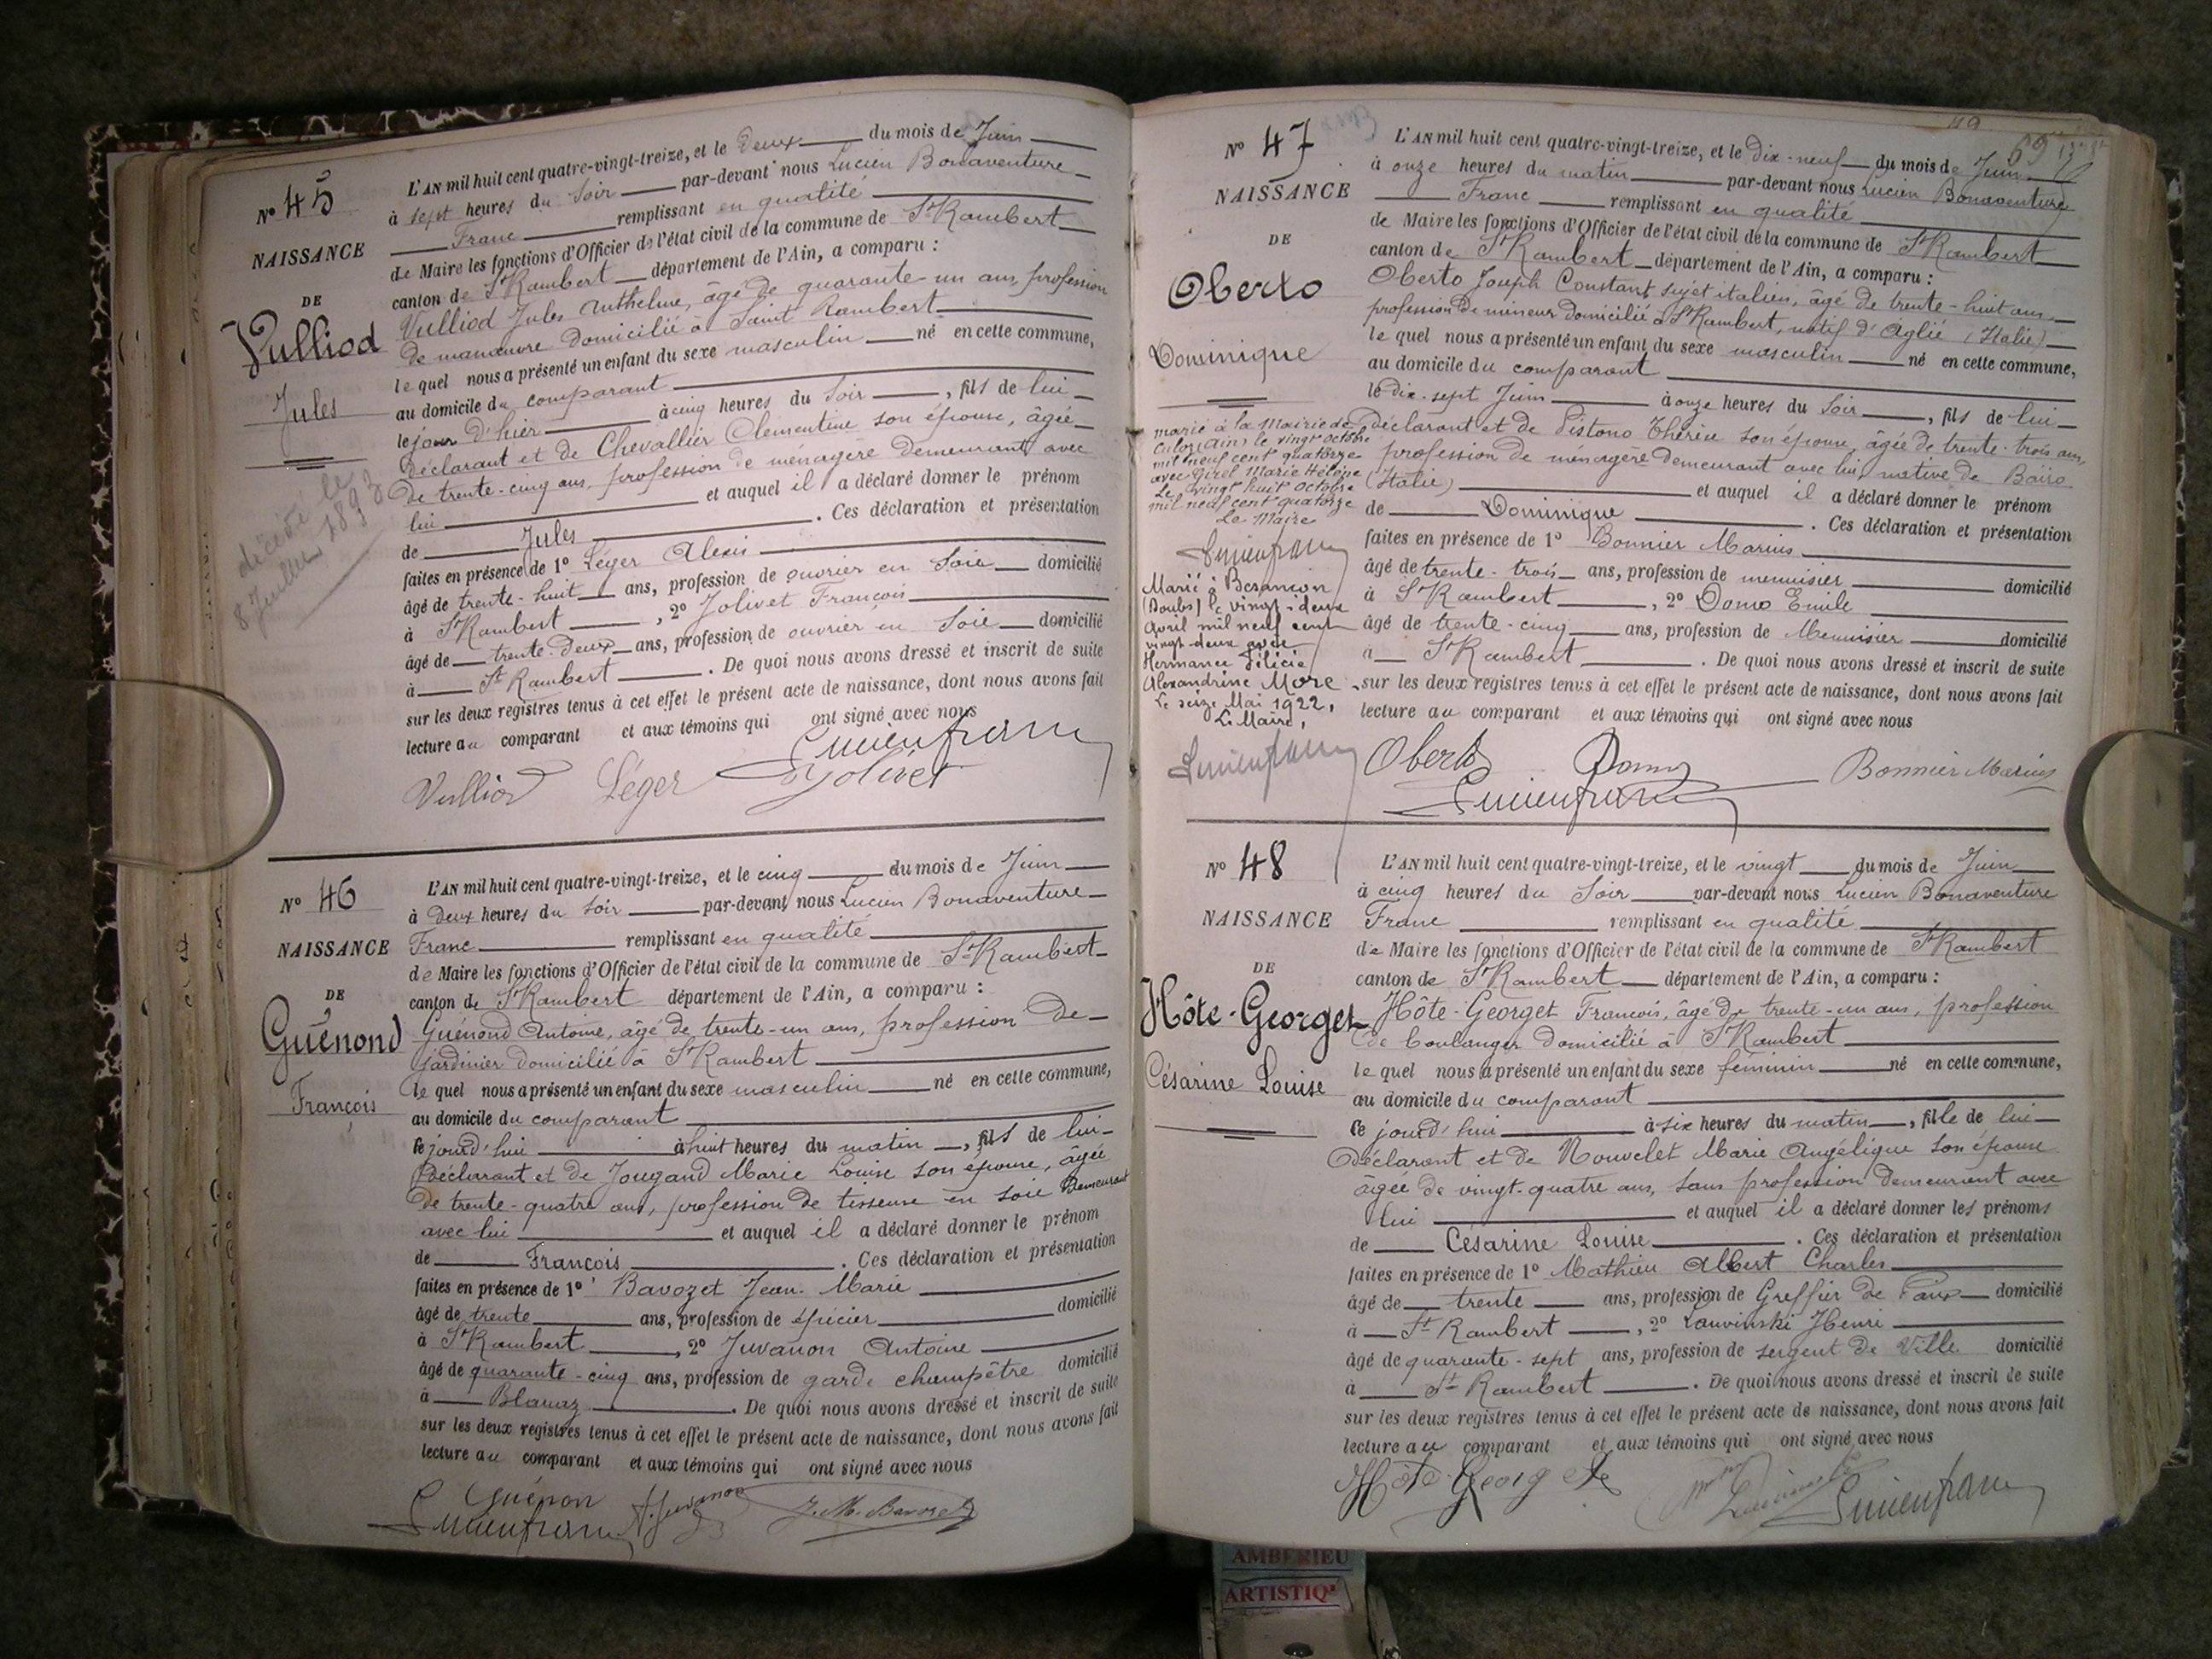 N° 45
NAISSANCE
DE
Vulliod
Jules
décédé le
8 Juillet 1893
L'AN mil huit cent quatre-vingt-treize, et le deux du mois de Juin
à sept heures du soir par-devant nous Lucien Bonaventure
Franc remplissant en qualité
de Maire les fonctions d'Officier de l'état civil de la commune de St Rambert
canton de St Rambert département de l'Ain, a comparu :
Vulliod Jules Anthelme, âgé de quarante-un ans, profession
de manœuvre domicilié à Saint Rambert
le quel nous a présenté un enfant du sexe masculin né en cette commune,
au domicile du comparant
le jour d'hier à cinq heures du soir, fils de lui
déclarant et de Chevallier Clémentine son épouse, âgée
de trente-cinq ans, profession de ménagère demeurant avec
lui et auquel il a déclaré donner le prénom
de Jules. Ces déclaration et présentation
faites en présence de 1° Léger Alexis
âgé de trente-huit ans, profession de ouvrier en soie domicilié
à St Rambert, 2° Jolivet François
âgé de trente-deux ans, profession de ouvrier en soie domicilié
à St Rambert. De quoi nous avons dressé et inscrit de suite
sur les deux registres tenus à cet effet le présent acte de naissance, dont nous avons fait
lecture au comparant et aux témoins qui ont signé avec nous
Vulliod Léger Jolivet Lucien franc
N° 46
NAISSANCE
DE
Guénond
François
L'AN mil huit cent quatre-vingt-treize, et le cinq du mois de Juin
à deux heures du soir par-devant nous Lucien Bonaventure
Franc remplissant en qualité
de Maire les fonctions d'Officier de l'état civil de la commune de St Rambert
canton de St Rambert département de l'Ain, a comparu :
Guénond Antoine, âgé de trente-un ans, profession de
jardinier domicilié à St Rambert
le quel nous a présenté un enfant du sexe masculin né en cette commune,
au domicile du comparant
ce jourd'hui à huit heures du matin, fils de lui
déclarant et de Jougand Marie Louise son épouse, âgée
de trente-quatre ans, profession de tisseuse en soie demeurant
avec lui et auquel il a déclaré donner le prénom
de François. Ces déclaration et présentation
faites en présence de 1° Bavozet Jean-Marie
âgé de trente ans, profession de épicier domicilié
à St Rambert, 2° Juvanon Antoine
âgé de quarante-cinq ans, profession de garde champêtre domicilié
à Blanaz. De quoi nous avons dressé et inscrit de suite
sur les deux registres tenus à cet effet le présent acte de naissance, dont nous avons fait
lecture au comparant et aux témoins qui ont signé avec nous
Guénon
Lucien franc A. Juvanon J. M. Bavozet
69
N° 47
NAISSANCE
DE
Oberto
Dominique
marié à la Mairie de
Culoz (Ain) le vingt octobre
mil neuf cent quatorze
avec Girel Marie Hélène
Le vingt huit Octobre
mil neuf cent quatorze
Le Maire
Lucien franc
Marié à Besançon
(Doubs) le vingt-deux
Avril mil neuf cent
vingt-deux avec
Hermance Félicie
Alexandrine More
Le seize Mai 1922,
Le Maire,
Lucien franc
L'AN mil huit cent quatre-vingt-treize, et le dix-neuf du mois de Juin
à onze heures du matin par-devant nous Lucien Bonaventure
Franc remplissant en qualité
de Maire les fonctions d'Officier de l'état civil de la commune de St Rambert
canton de St Rambert département de l'Ain, a comparu :
Oberto Joseph Constant, sujet italien, âgé de trente-huit ans,
profession de mineur domicilié à St Rambert, natif d'Aglié (Italie)
le quel nous a présenté un enfant du sexe masculin né en cette commune,
au domicile du comparant
le dix-sept Juin à onze heures du soir, fils de lui
déclarant et de Pistono Thérèse son épouse, âgée de trente-trois ans,
profession de ménagère demeurant avec lui, native de Baïro
(Italie) et auquel il a déclaré donner le prénom
de Dominique. Ces déclaration et présentation
faites en présence de 1° Bonnier Marius
âgé de trente-trois ans, profession de menuisier domicilié
à St Rambert, 2° Domo Emile
âgé de trente-cinq ans, profession de Menuisier domicilié
à St Rambert. De quoi nous avons dressé et inscrit de suite
sur les deux registres tenus à cet effet le présent acte de naissance, dont nous avons fait
lecture au comparant et aux témoins qui ont signé avec nous
Oberto Domo Bonnier Marius
Lucien franc
N° 48
NAISSANCE
DE
Hôte-Georget
Césarine Louise
L'AN mil huit cent quatre-vingt-treize, et le vingt du mois de Juin
à cinq heures du soir par-devant nous Lucien Bonaventure
Franc remplissant en qualité
de Maire les fonctions d'Officier de l'état civil de la commune de St Rambert
canton de St Rambert département de l'Ain, a comparu :
Hôte-Georget François, âgé de trente-un ans, profession
de boulanger domicilié à St Rambert
le quel nous a présenté un enfant du sexe féminin né en cette commune,
au domicile du comparant
ce jourd'hui à six heures du matin, fille de lui
déclarant et de Nouvelet Marie Angélique son épouse
âgée de vingt-quatre ans, sans profession demeurant avec
lui et auquel il a déclaré donner les prénoms
de Césarine Louise. Ces déclaration et présentation
faites en présence de 1° Mathieu Albert Charles
âgé de trente ans, profession de Greffier de Paix domicilié
à St Rambert, 2° Lauvinski Henri
âgé de quarante-sept ans, profession de sergent de Ville domicilié
à St Rambert. De quoi nous avons dressé et inscrit de suite
sur les deux registres tenus à cet effet le présent acte de naissance, dont nous avons fait
lecture au comparant et aux témoins qui ont signé avec nous
Hôte-Georget Lucien franc
AMBERIEU
ARTISTIQ